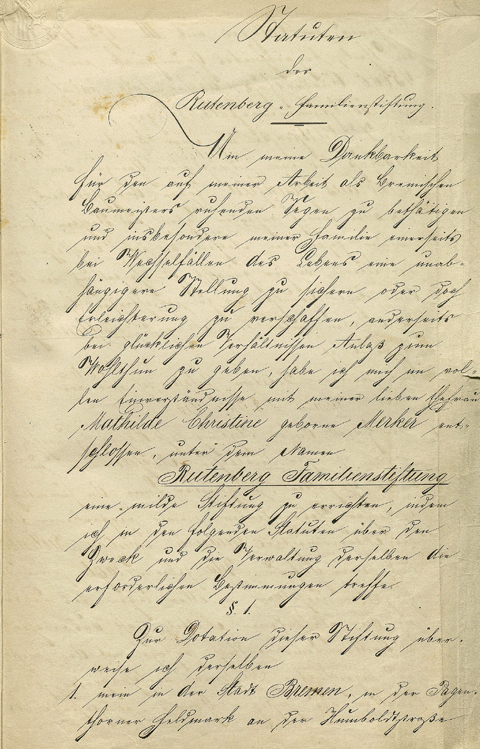 Statuten
der
Rutenberg-Familienstiftung.
Um meine Dankbarkeit
für den auf meiner Arbeit als Bremischen
Baumeisters ruhenden Segen zu bethätigen
und insbesondere meiner Familie einerseits
bei Wechselfällen des Lebens eine unab-
hängigere Stellung zu sichern oder doch
Erleichterung zu verschaffen, anderseits
bei glücklichen Verhältnissen Anlaß zum
Wohlthun zu geben, habe ich mich im vol-
len Einverständnisse mit meiner lieben Ehefrau
Mathilde Christine geborne Merker ent-
schlossen, unter dem Namen
Rutenberg Familienstiftung
eine milde Stiftung zu errichten, indem
ich in den folgenden Statuten über den
Zweck und die Verwaltung derselben die
erforderlichen Bestimmungen treffe.
§. 1.
Zur Dotation dieser Stiftung über-
weise ich derselben
1. mein in der Stadt Bremen, in der Pagen-
thorner Feldmark an der Humboldtstraße